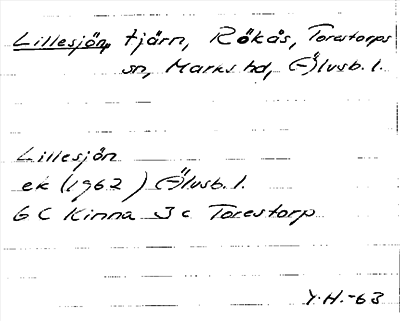 Lillesjön, tjärn, Rökås, Torestorps
sn, Marks hd, Älvsb. l.
Lillesjön
ek (1962) Älvsb. l.
6 C Kinna 3 c Torestorp
Y.H.-63